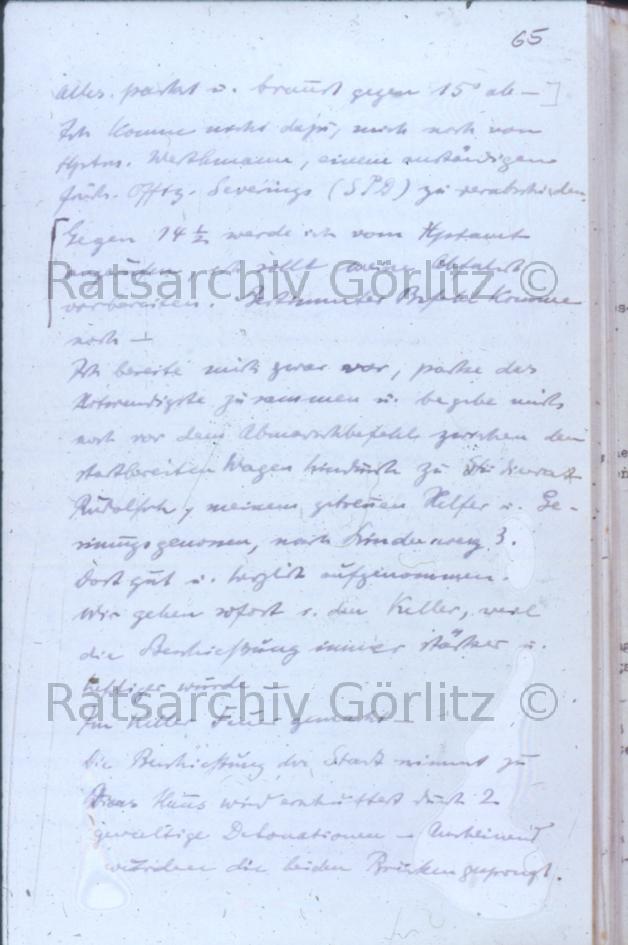 65
alles packt u. braust gegen 15° ab — ]
Ich komme nicht dazu, mich noch von
Hptm. Werthmann, einem anständigen
früh. Offz. Severings (SPD) zu verabschieden.
[ Gegen 14 1/2 werde ich vom Hptamt
ich sollt meine Abfahrt
vorbereiten. Bestimmter Befehl komme
noch —
Ich bereite mich zwar vor, packe das
Notwendigste zusammen u. begebe mich
noch vor dem Abmarschbefehl zwischen den
startbereiten Wagen hindurch zu
Rudolph, meinem getreuen Helfer u. Ge-
sinnungsgenossen, nach 3.
Dort gut u. herzlich aufgenommen.
Wir gehen sofort i. den Keller, weil
die Beschießung immer stärker u.
heftiger wurde —
Im Keller Feuer gemacht —
Die Beschießung der Stadt nimmt zu
Haus wird erschüttert durch 2
gewaltige Detonationen — Anscheinend
wurden die beiden Brücken gesprengt.
Ratsarchiv Görlitz ©
Ratsarchiv Görlitz ©